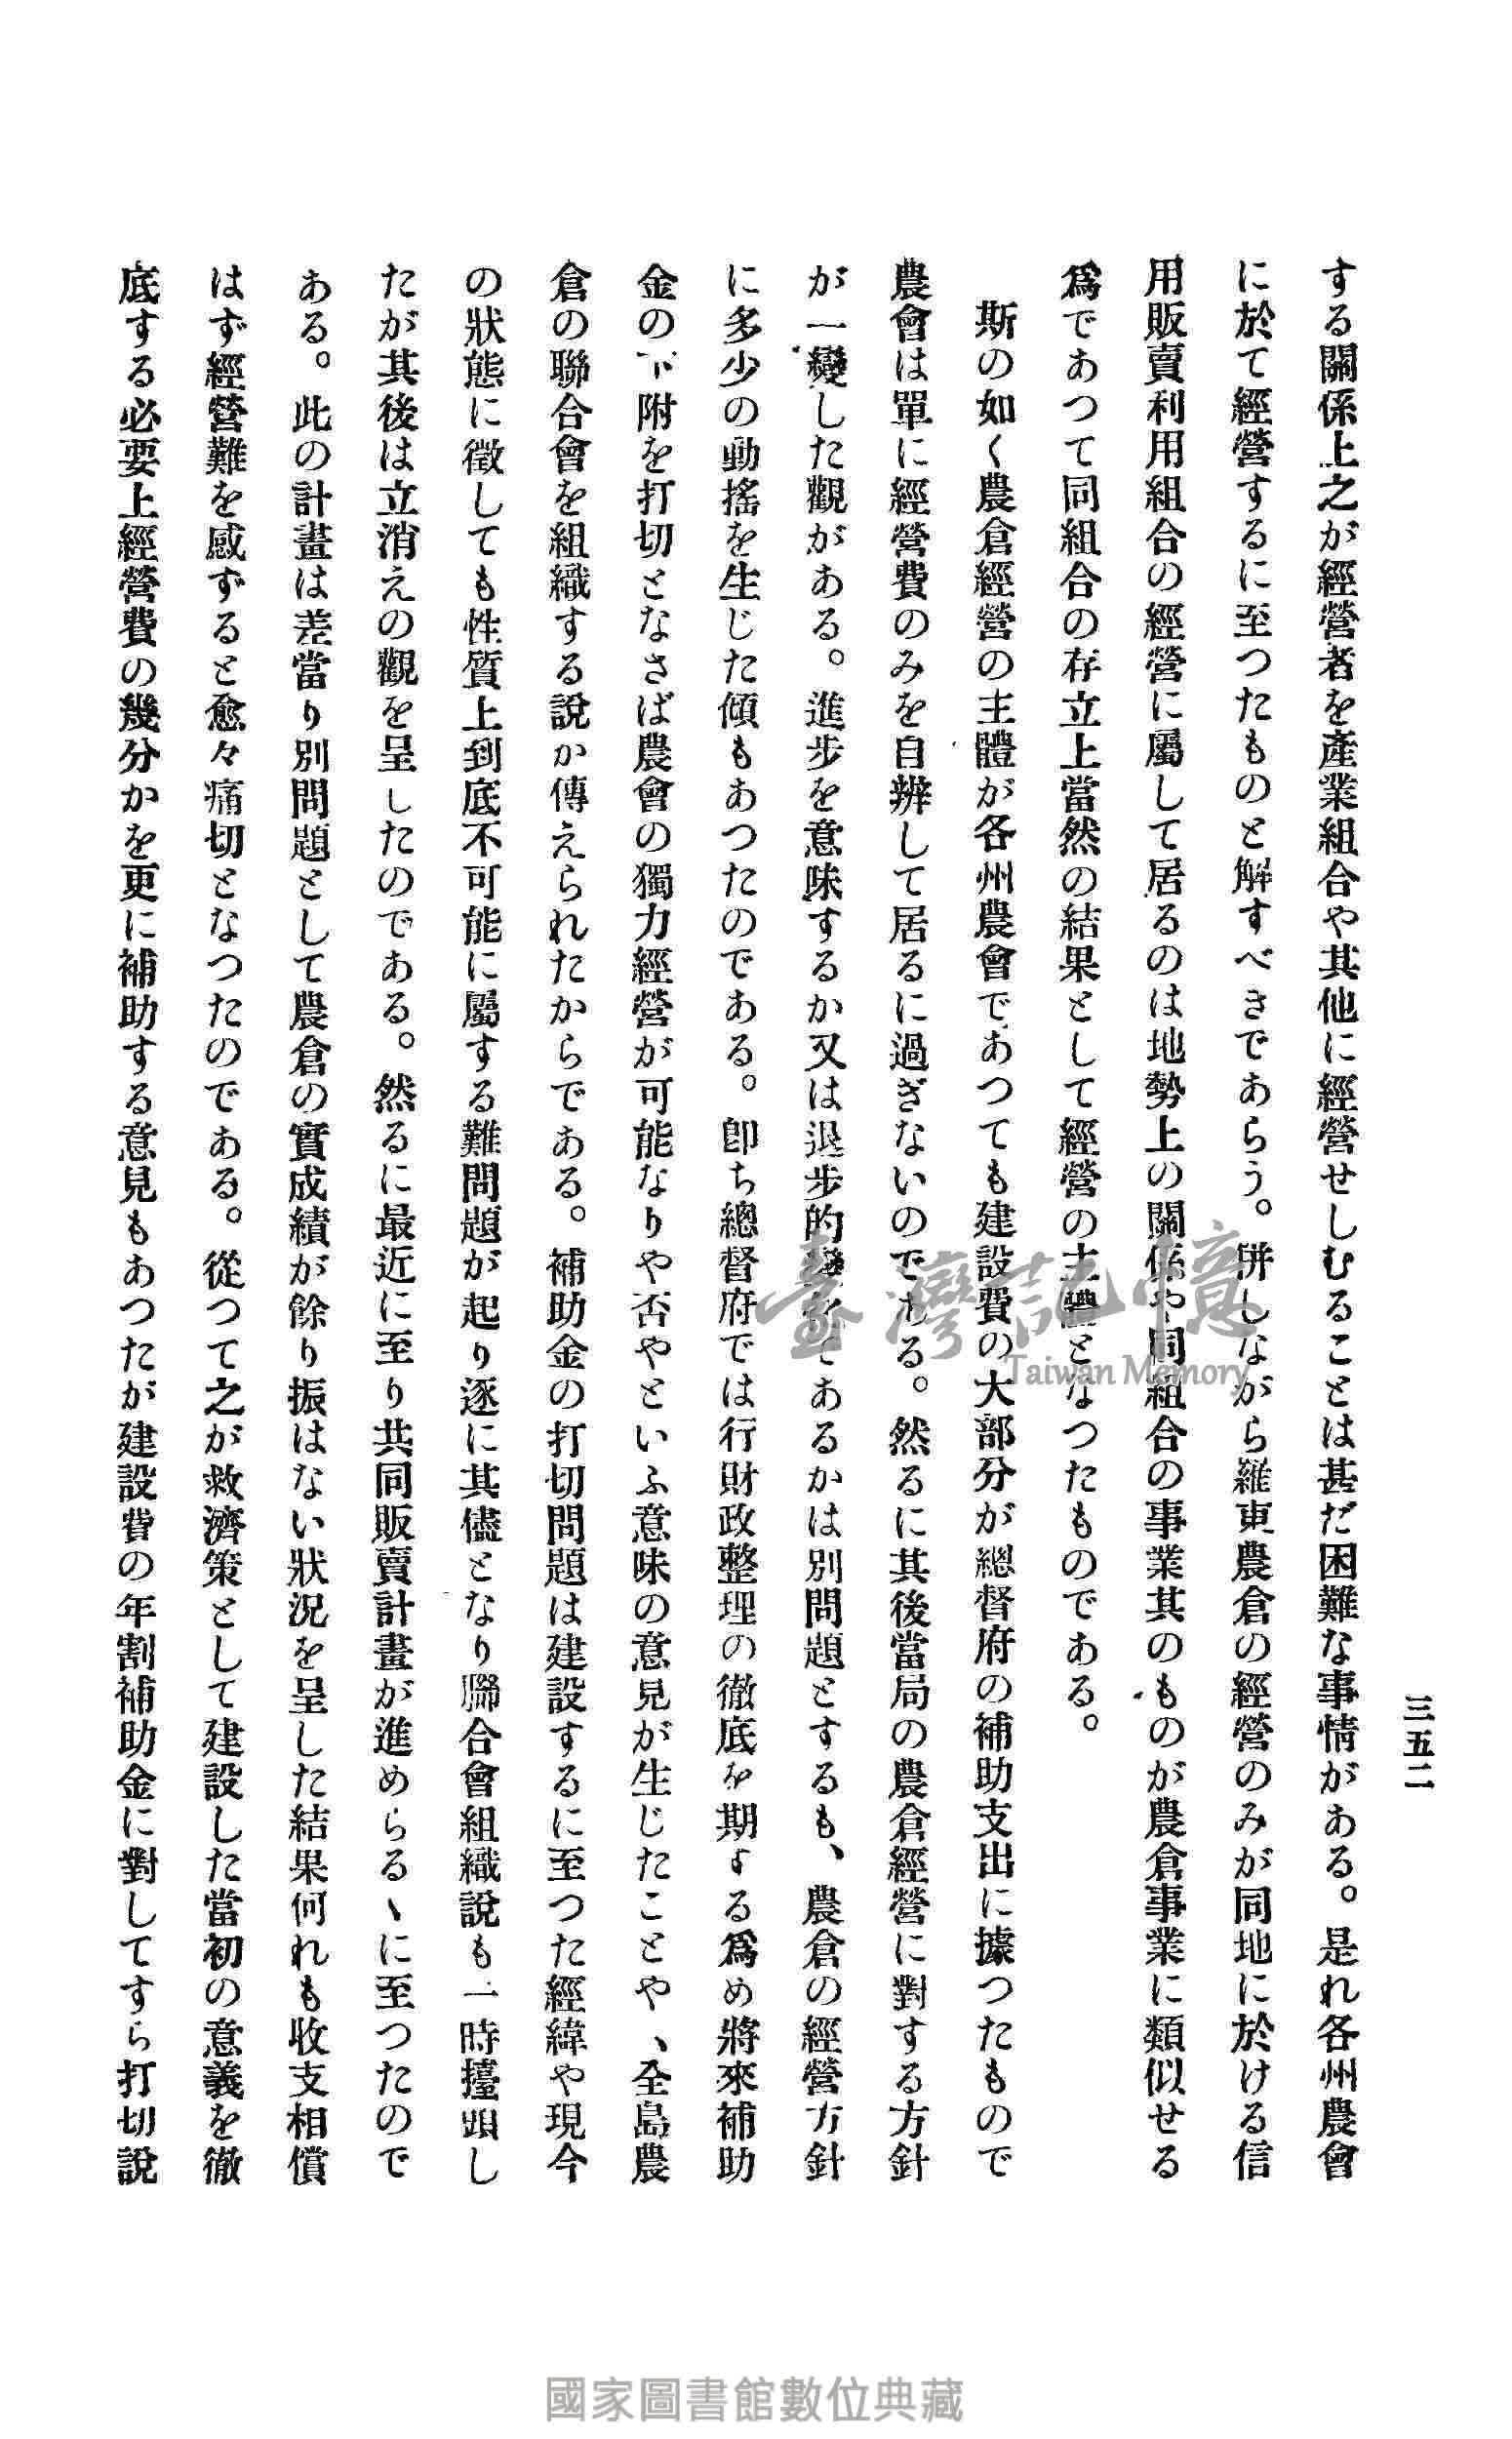 三五二
する關係上之が經營者を產業組合や其他に經營せしむることは甚だ困難な事情がある。是れ各州農會
に於て經營するに至つたものと解すべきであらう。併しながら羅東農倉の經營のみが同地に於ける信
用販賣利用組合の經營に屬して居るのは地勢上の關係や同組合の事業其のものが農倉事業に類似せる
爲であつて同組合の存立上當然の結果として經營の主體となつたものである。
斯の如く農倉經營の主體が各州農會であつても建設費の大部分が總督府の補助支出に據つたもので
農會は單に經營費のみを自辨して居るに過ぎないのである。然るに其後當局の農倉經營に對する方針
が一變した觀がある。進步を意味するか又は退步的變化であるかは別問題とするも、農倉の經營方針
に多少の動搖を生じた傾もあつたのである。卽ち總督府では行財政整理の徹底を期する爲め將來補助
金の下附を打切となさば農會の獨力經營が可能なりや否やといふ意味の意見が生じたことや、全島農
倉の聯合會を組織する說か傳えられたからである。補助金の打切問題は建設するに至つた經緯や現今
の狀態に徵しても性質上到底不可能に屬する難問題が起り逐に其儘となり聯合會組織說も一時擡頭し
たが其後は立消えの觀を呈したのである。然るに最近に至り共同販賣計畫が進めらるゝに至つたので
ある。此の計畫は差當り別問題として農倉の實成績が餘り振はない狀況を呈した結果何れも收支相償
はず經營難を感ずると愈々痛切となつたのである。從つて之が救濟策として建設した當初の意義を徹
底する必要上經營費の幾分かを更に補助する意見もあつたが建設費の年割補助金に對してすら打切說
臺灣記憶
Taiwan Memory
國家圖書館數位典藏